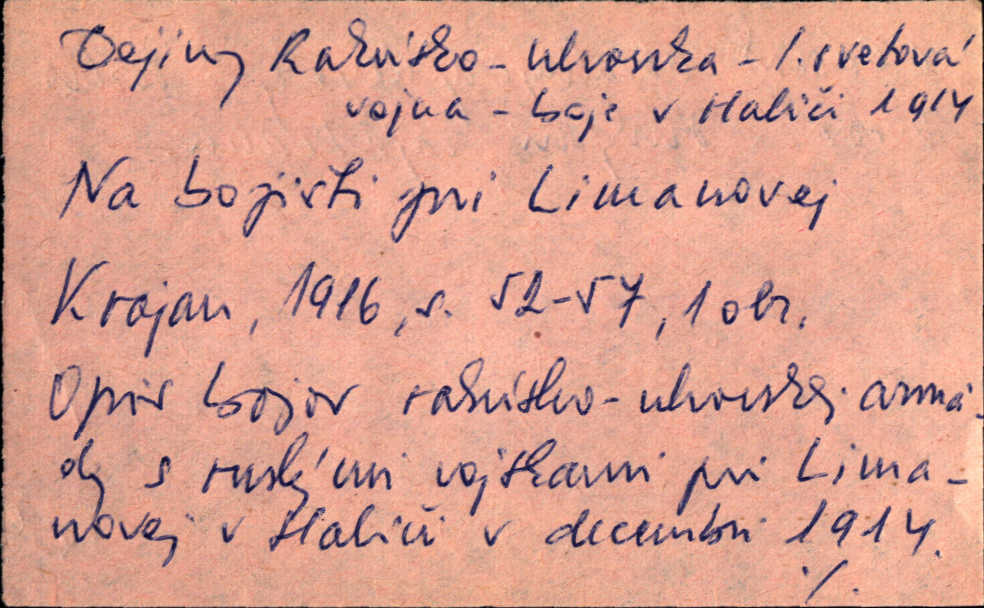 Dejiny Rakúsko-uhorska - 1. svetová
vojna - boje v Haliči 1914
Na bojišti pri Limanovej
Krajan, 1916, s. 52-57, 1 obr.
Opis bojov rakúsko-uhorskej armá-
dy s ruskými vojskami pri Lima-
novej v Haliči v decembri 1914.
./.